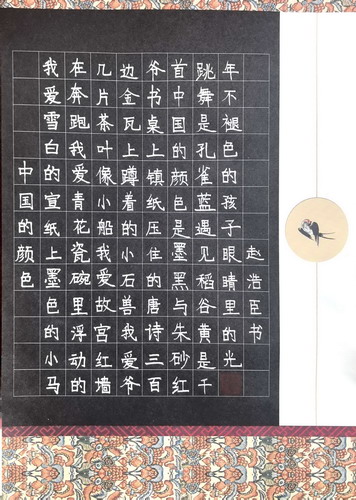 中国的颜色
我爱雪白的宣纸上墨色的小马
在奔跑我爱青花瓷碗里浮动的
几片茶叶像小船我爱故宫红墙
边金瓦上蹲着的小石兽我爱爷
爷书桌上镇纸压住的唐诗三百
首中国的颜色是墨黑与朱砂红
跳舞是孔雀蓝遇见稻谷黄是千
年不褪色的孩子眼睛里的光
赵浩臣书